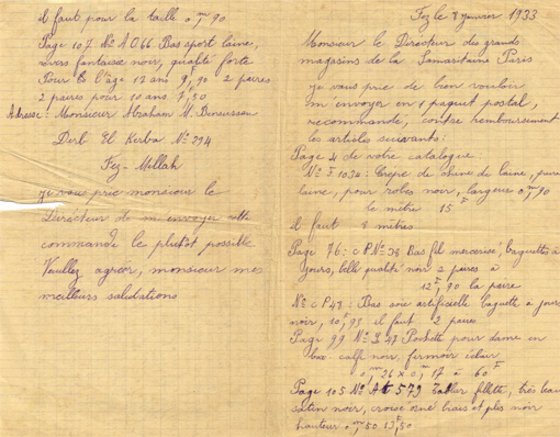 Fez le 8 janvier 1933
Monsieur le Directeur des grands
magasins de la Samaritaine Paris
je vous prie de bien vouloir
m'envoyer en 1 paquet postal,
recommandé, contre remboursement
les articles suivants:
Page 4 de votre catalogue.
No F 1034: Crêpe de chine de laine, pure
laine, pour robes noir, largeur 0,m 90
le mètre 15 F
il faut 8 mètres
Page 76: c P No 38 Bas fil mercerisé, baguettes à
jours, belle qualité noir 2 paires à
12F,90 la paire
No c P 48: Bas soie artificielle baguette à jours
noir, 10F,95 il faut 2 paires
Page 99 No S 47 Pochette pour dame en
box-calf noir fermoir éclair
0,m 26 x 0,m 17 à 60F
Page 105 No At 579 Tablier fillette, très beau
satin noir, croisé orné biais et plis noir
hauteur 0,m50 13F,50
il faut pour la taille 0,m 90
Page 107 No A 066 Bas sport laine,
revers fantaisie noir, qualité forte
Pour l'âge 12 ans 9F,90 2 paires
2 paires pour 10 ans 7F,50
Adresse: Monsieur Abraham M. Benaussan
Derb El Kerba No 294
Fez-Mellah
je vous prie monsieur le
Directeur de m'envoyer cette
commande le plutôt possible
Veuillez agréer, monsieur mes
meilleurs salutations